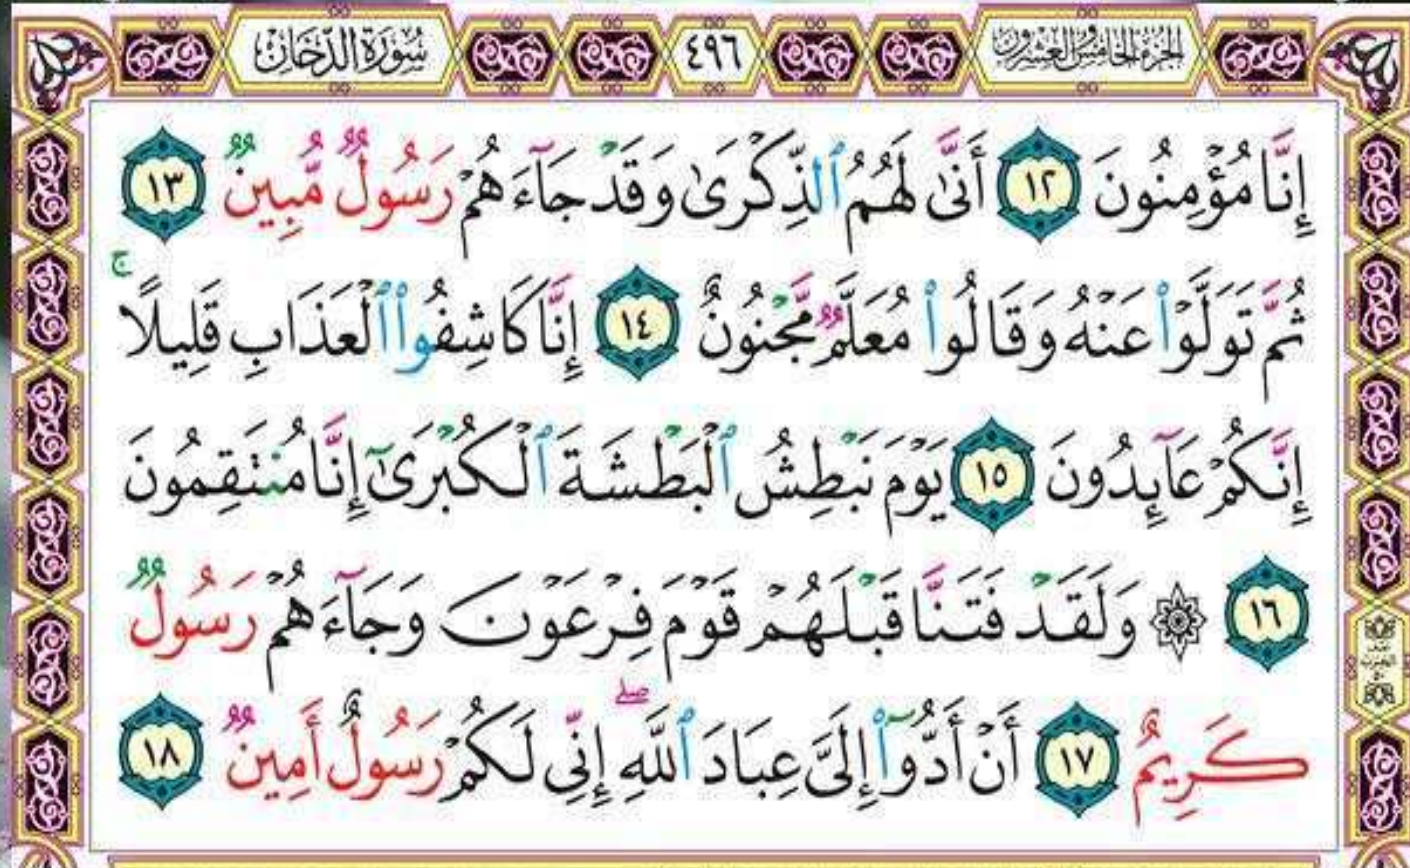 الجزء الخامس والعشرون ٤٩٦ سورة الدخان
إِنَّا مُؤْمِنُونَ ١٢ أَنَّىٰ لَهُمُ ٱلذِّكْرَىٰ وَقَدْ جَآءَهُمْ رَسُولٌ مُّبِينٌ ١٣
ثُمَّ تَوَلَّوْا۟ عَنْهُ وَقَالُوا۟ مُعَلَّمٌ مَّجْنُونٌ ١٤ إِنَّا كَاشِفُوا۟ ٱلْعَذَابِ قَلِيلًا ۚ
إِنَّكُمْ عَآئِدُونَ ١٥ يَوْمَ نَبْطِشُ ٱلْبَطْشَةَ ٱلْكُبْرَىٰٓ إِنَّا مُنتَقِمُونَ
١٦ ۞ وَلَقَدْ فَتَنَّا قَبْلَهُمْ قَوْمَ فِرْعَوْنَ وَجَآءَهُمْ رَسُولٌ
كَرِيمٌ ١٧ أَنْ أَدُّوٓا۟ إِلَىَّ عِبَادَ ٱللَّهِ ۖ إِنِّى لَكُمْ رَسُولٌ أَمِينٌ ١٨